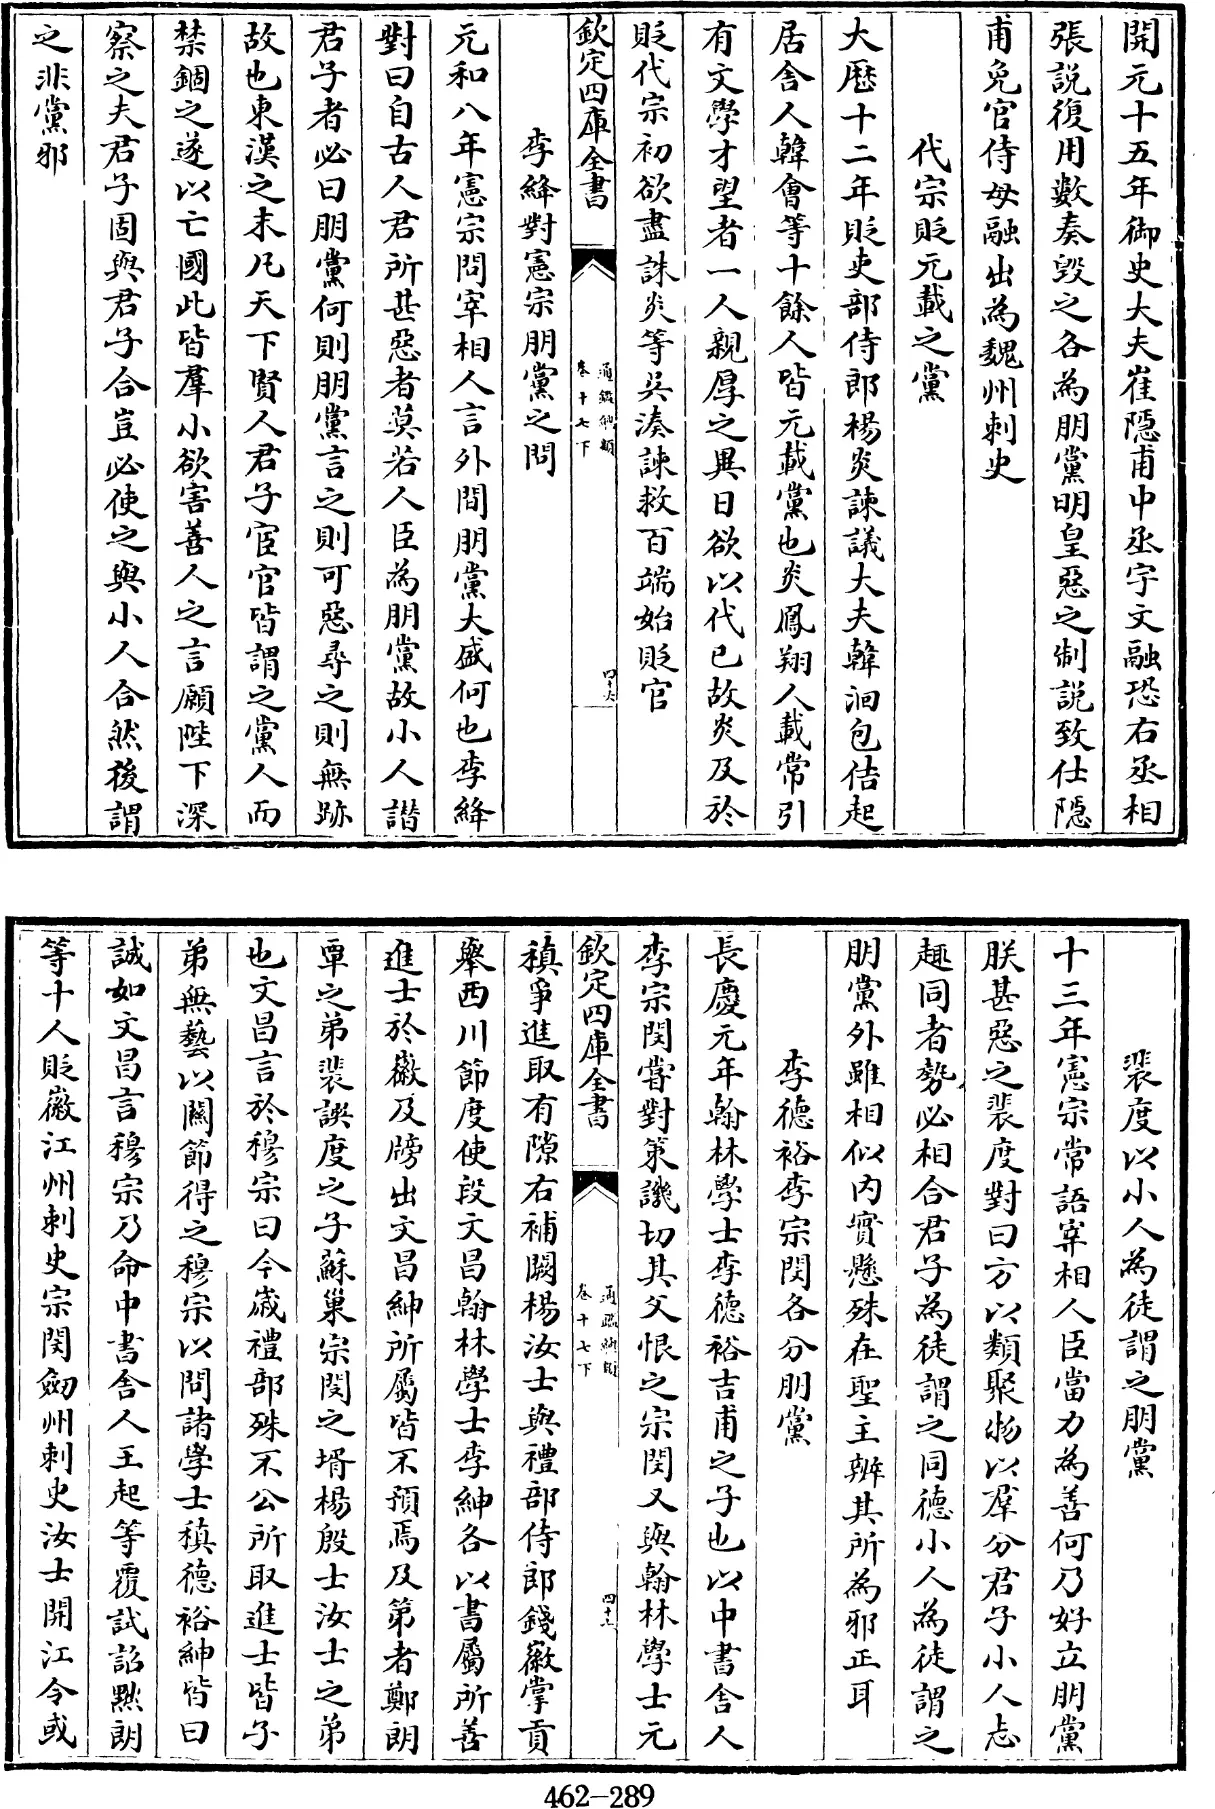 開元十五年御史大夫崔隱甫中丞宇文融恐右丞相
張說復用數奏毀之各為朋黨明皇惡之制說致仕隱
甫免官侍母融出為魏州刺史
代宗貶元載之黨
大歷十二年貶吏部侍郎楊炎諫議大夫韓洄包佶起
居舍人韓會等十餘人皆元載黨也炎鳳翔人載常引
有文學才望者一人親厚之異日欲以代己故炎及於
貶代宗初欲盡誅炎等吳湊諫救百端始貶官
欽定四庫全書
通鑑總類
卷十七下
四十六
李絳對憲宗朋黨之問
元和八年憲宗問宰相人言外間朋黨大盛何也李絳
對曰自古人君所甚惡者莫若人臣為朋黨故小人譖
君子者必曰朋黨何則朋黨言之則可惡尋之則無跡
故也東漢之末凡天下賢人君子宦官皆謂之黨人而
禁錮之遂以亡國此皆羣小欲害善人之言願陛下深
察之夫君子固與君子合豈必使之與小人合然後謂
之非黨邪
裴度以小人為徒謂之朋黨
十三年憲宗常語宰相人臣當力為善何乃好立朋黨
朕甚惡之裴度對曰方以類聚物以羣分君子小人志
趣同者勢必相合君子為徒謂之同德小人為徒謂之
朋黨外雖相似內實懸殊在聖主辨其所為邪正耳
李德裕李宗閔各分朋黨
長慶元年翰林學士李德裕吉甫之子也以中書舍人
李宗閔嘗對策譏切其父恨之宗閔又與翰林學士元
欽定四庫全書
通鑑總類
卷十七下
稹爭進取有隙右補闕楊汝士與禮部侍郎錢徽掌貢
舉西川節度使段文昌翰林學士李紳各以書屬所善
進士於徽及牓出文昌紳所屬皆不預焉及第者鄭朗
覃之弟裴譔度之子蘇巢宗閔之壻楊殷士汝士之弟
也文昌言於穆宗曰今歲禮部殊不公所取進士皆子
弟無藝以關節得之穆宗以問諸學士稹德裕紳皆曰
誠如文昌言穆宗乃命中書舍人王起等覆試詔黜朗
等十人貶徽江州刺史宗閔劒州刺史汝士開江令或
462-289